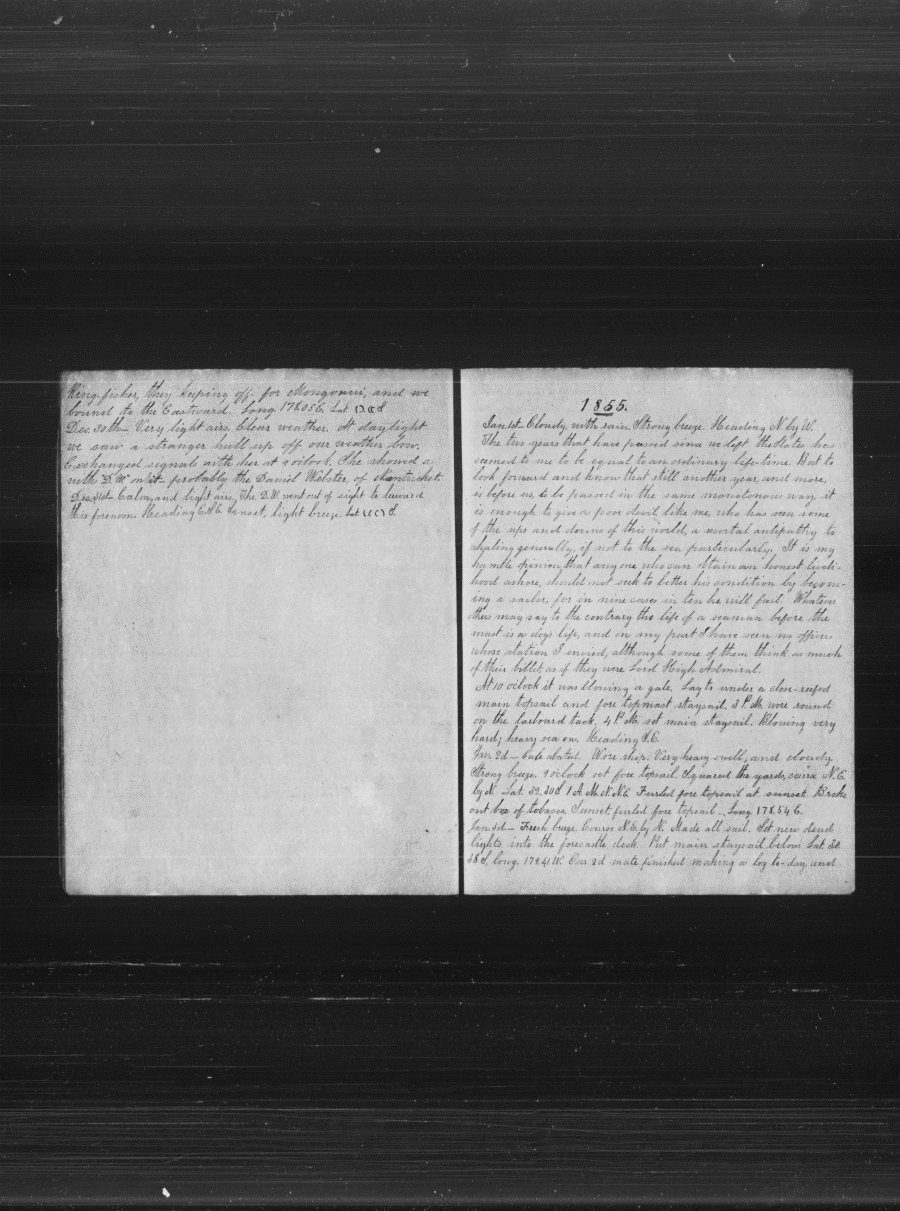 King-fisher, they keeping off for Mongonui, and we
bound to the Eastward. Long. 178.05 E. Lat.
Dec. 30th — Very light airs. Clear weather. At daylight
we saw a stranger hull up off our weather bow.
Exchanged signals with her at 9 oclock. She showed a
with D.W. on it — probably the Daniel Webster, of Nantucket.
Dec. 31st — Calm, and light airs. The D.W. went out of sight to leeward
this forenoon. Heading E.S.E. Sunset, light breeze. Lat
1855.
Jan. 1st. Cloudy, with rain. Strong breeze. Heading N. by W.
The two years that have passed since we left the States has
seemed to me to be equal to an ordinary life-time. But to
look forward and know that still another year, and more,
is before us to be passed in the same monotonous way, it
is enough to give a poor devil like me, who has seen some
of the ups and downs of this world, a mortal antipathy to
whaling generally, if not to the sea particularly. It is my
humble opinion, that any one who can obtain an honest liveli-
hood ashore, should not seek to better his condition by becom-
ing a sailor, for in nine cases in ten he will fail. Whatever
others may say to the contrary the life of a seaman before the
mast is a dog's life, and on my part I have seen no officer
whose station I envied, although some of them think as much
of their billet, as if they were Lord High Admiral.
At 10 oclock it was blowing a gale. Lay to under a close-reefed
main topsail and fore topmast staysail. 3 P.M. wore round
on the larboard tack. 4 P.M. set main staysail. Blowing very
hard; heavy sea on. Heading S.E.
Jan. 2d — Gale abated. Wore ship. Very heavy swell, and cloudy.
Strong breeze. 9 oclock set fore topsail. Squared the yards, course N.E.
by N. Lat. 39.30 S 1 A.M. N.N.E. Furled fore topsail at sunset. Broke
out box of tobacco. Sunset, furled fore topsail — Long. 178.54 E.
Jan. 3d — Fresh breeze. Course N.E. by N. Made all sail. Set new dead
lights into the forecastle deck. Put main staysail below. Lat. 38
38 S, long. 179.41 W. Our 2d mate finished making a log to-day, and